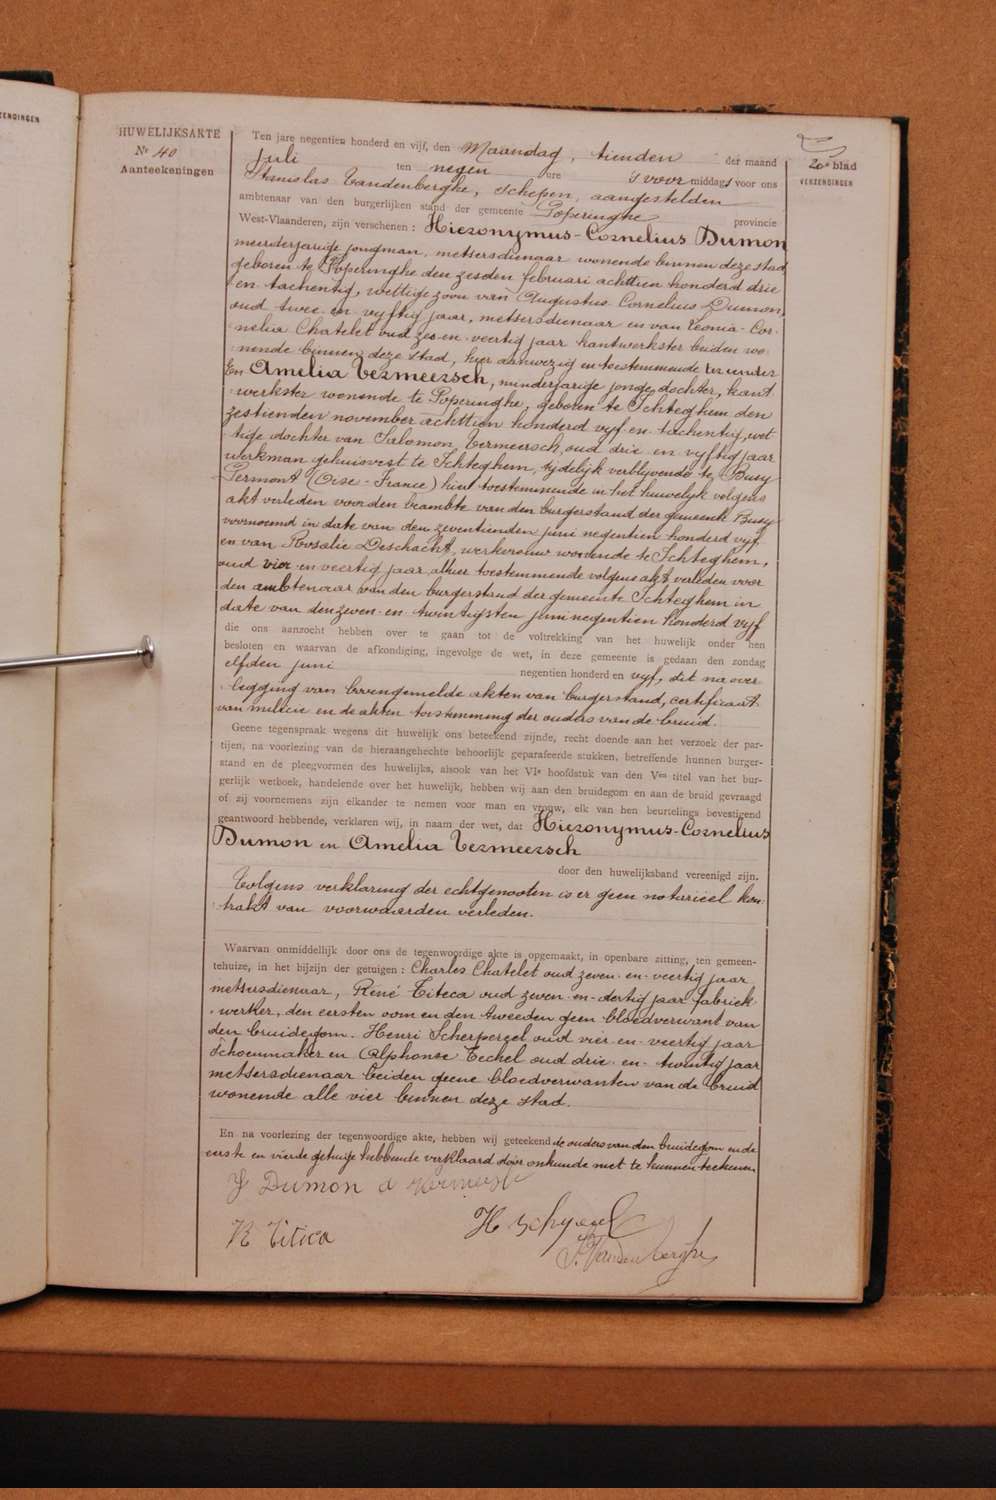 ZENDINGEN
HUWELIJKSAKTE
Nr 40
Aanteekeningen
20e blad
VERZENDINGEN
Ten jare negentien honderd en vijf, den Maandag, tienden der maand
Juli ten negen ure 's voor middags voor ons
Stanislas Vandenberghe, schepen, aangestelden
ambtenaar van den burgerlijken stand der gemeente Poperinghe provincie
West-Vlaanderen, zijn verschenen : Hieronymus-Cornelius Dumon
meerderjarige jongman, metsersdienaar wonende binnen deze stad
geboren te Poperinghe den zesden februari achttien honderd drie
en tachentig, wettige zoon van Augustus Cornelius Dumon,
oud twee en vyftig jaar, metsersdienaar en van Leonia-Cor-
nelia Chatelet oud zes en veertig jaar kantwerkster beiden wo-
nende binnen deze stad, hier aanwezig en toestemmende ter eender
En Amelia Vermeersch, minderjarige jonge dochter, kant
werkster wonende te Poperinghe, geboren te Ichteghem den
zestienden november achttien honderd vyf en tachentig, wet-
tige dochter van Salomon Vermeersch, oud drie en vyftig jaar
werkman gehuisvest te Ichteghem, tydelyk verblyvende te Bury
Permont (Oise-France) hier toestemmende in het huwelyk volgens
akt verleden voor den beambte van den burgerstand der gemeente Bury
voornoemd in date van den zeventienden juni negentien honderd vyf
en van Rosalie Deschacht, werkvrouw wonende te Ichteghem,
oud vier en veertig jaar alhier toestemmende volgens akt verleden voor
den ambtenaar van den burgerstand der gemeente Ichteghem in
date van den zeven en twintigsten juni negentien honderd vyf
die ons aanzocht hebben over te gaan tot de voltrekking van het huwelijk onder hen
besloten en waarvan de afkondiging, ingevolge de wet, in deze gemeente is gedaan den zondag
elfden juni negentien honderd en vyf, dit na over
legging van bovengemelde akten van burgerstand, certificaat
van milicie en de akten toestemming der ouders van de bruid.
Geene tegenspraak wegens dit huwelijk ons beteekend zijnde, recht doende aan het verzoek der par-
tijen, na voorlezing van de hieraangehechte behoorlijk geparafeerde stukken, betreffende hunnen burger-
stand en de pleegvormen des huwelijks, alsook van het VIe hoofdstuk van den Ven titel van het bur-
gerlijk wetboek, handelende over het huwelijk, hebben wij aan den bruidegom en aan de bruid gevraagd
of zij voornemens zijn elkander te nemen voor man en vrouw, elk van hen beurtelings bevestigend
geantwoord hebbende, verklaren wij, in naam der wet, dat Hieronymus-Cornelius
Dumon en Amelia Vermeersch
door den huwelijksband vereenigd zijn.
Volgens verklaring der echtgenooten is er geen notarieel kon-
trakt van voorwaarden verleden.
Waarvan onmiddellijk door ons de tegenwoordige akte is opgemaakt, in openbare zitting, ten gemeen-
tehuize, in het bijzijn der getuigen : Charles Chatelet oud zeven en veertig jaar
metsersdienaar, René Titeca oud zeven en dertig jaar fabriek-
werker, den eersten oom en den tweeden geen bloedverwant van
den bruidegom. Henri Scherpereel oud vier en veertig jaar
schoenmaker en Alphonse Techel oud drie en twintig jaar
metsersdienaar beiden geene bloedverwanten van de bruid
wonende alle vier binnen deze stad.
En na voorlezing der tegenwoordige akte, hebben wij geteekend de ouders van den bruidegom en de
eerste en vierde getuige hebbende verklaard door onkunde niet te kunnen teekenen
J Dumon a Vermeersch
R Titeca
S. Vandenberghe